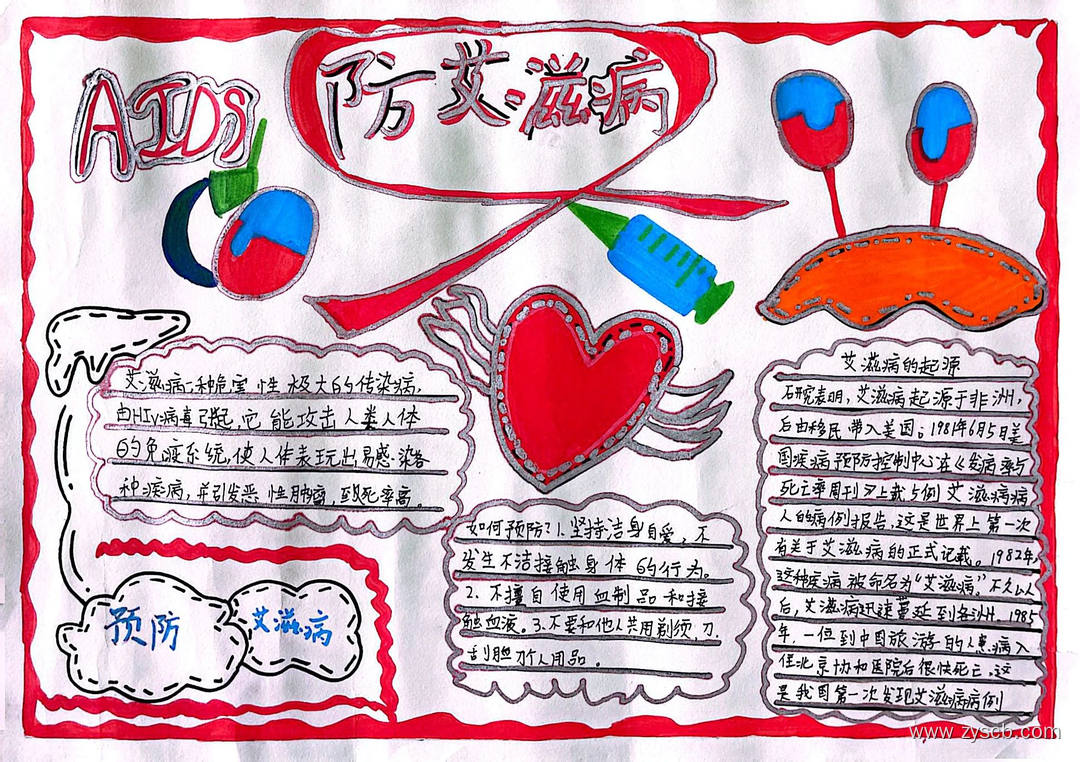 AIDS
防艾滋病
艾滋病一种危害性极大的传染病,
由HIV病毒引起,它能攻击人类人体
的免疫系统,使人体表现出易感染各
种疾病,并引发恶性肿瘤,致死率高。
预防
艾滋病
如何预防?1.坚持洁身自爱,不
发生不洁接触身体的行为。
2、不擅自使用血制品和接
触血液。3.不要和他人共用剃须刀、
刮脸个人用品。
艾滋病的起源
研究表明,艾滋病起源于非洲,
后由移民带入美国。1981年6月5日美
国疾病预防控制中心在《发病率与
死亡率周刊》上载5例艾滋病病
人的病例报告,这是世界上第一次
有关于艾滋病的正式记载。1982年,
这种疾病被命名为“艾滋病”不久以
后,艾滋病迅速蔓延到各洲。1985
年,一位到中国旅游的人患病入
住北京协和医院后很快死亡,这
是我国第一次发现艾滋病病例
www.zyscb.com